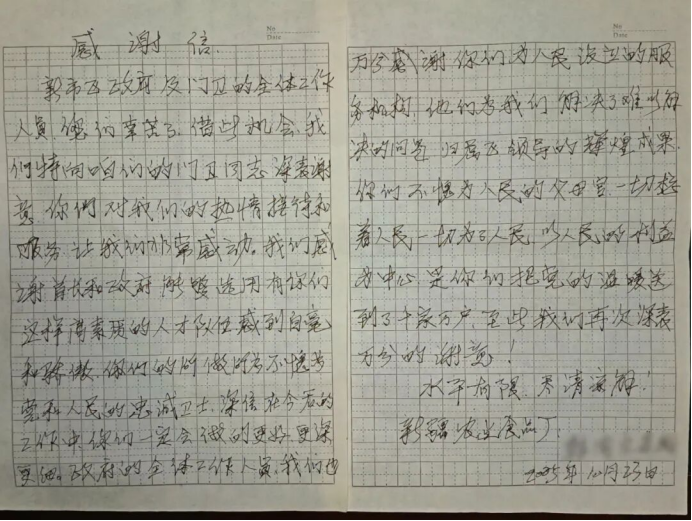 No
Date
感谢信
新市区政府及门卫的全体工作
人员,您们辛苦了。借此机会,我
们特向咱们的门卫同志深表谢
意,你們对我们的热情接待和
服务,让我们非常感动。我们感
谢首长和政府能够选用有你们
这样高素质的人才队伍感到自毫
和骄傲,你们的所做所为不愧为
党和人民的忠诚卫士,深信在今后的
工作中,你们一定会做的更好,更深
更细。政府的全体工作人员,我们也
No
Date
万分感谢你们为人民设立的服
务机构,他们为我们解决了难以解
决的问题,归属于领导的辉煌成果。
你们不愧为人民的父母官,一切想
着人民,一切为了人民,以人民的利益
为中心,是你们把党的温暖送
到了千家万户,至此我们再次深表
万分的谢意!
水平有限,尽请谅解!
新疆农业食品厂
2005年10月23日